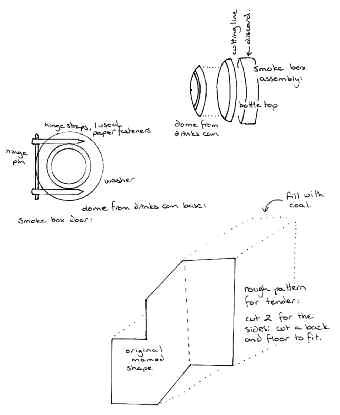 cutting line
discard.
Smoke box
assembly:
bottle top
dome from
drinks can
hinge straps, I used
paper fasteners
hinge
pin
washer
dome from drinks can base:
Smoke box door:
fill with
coal.
rough pattern
for tender:
cut 2 for the
sides: cut a back
and floor to fit.
original
mamod
shape